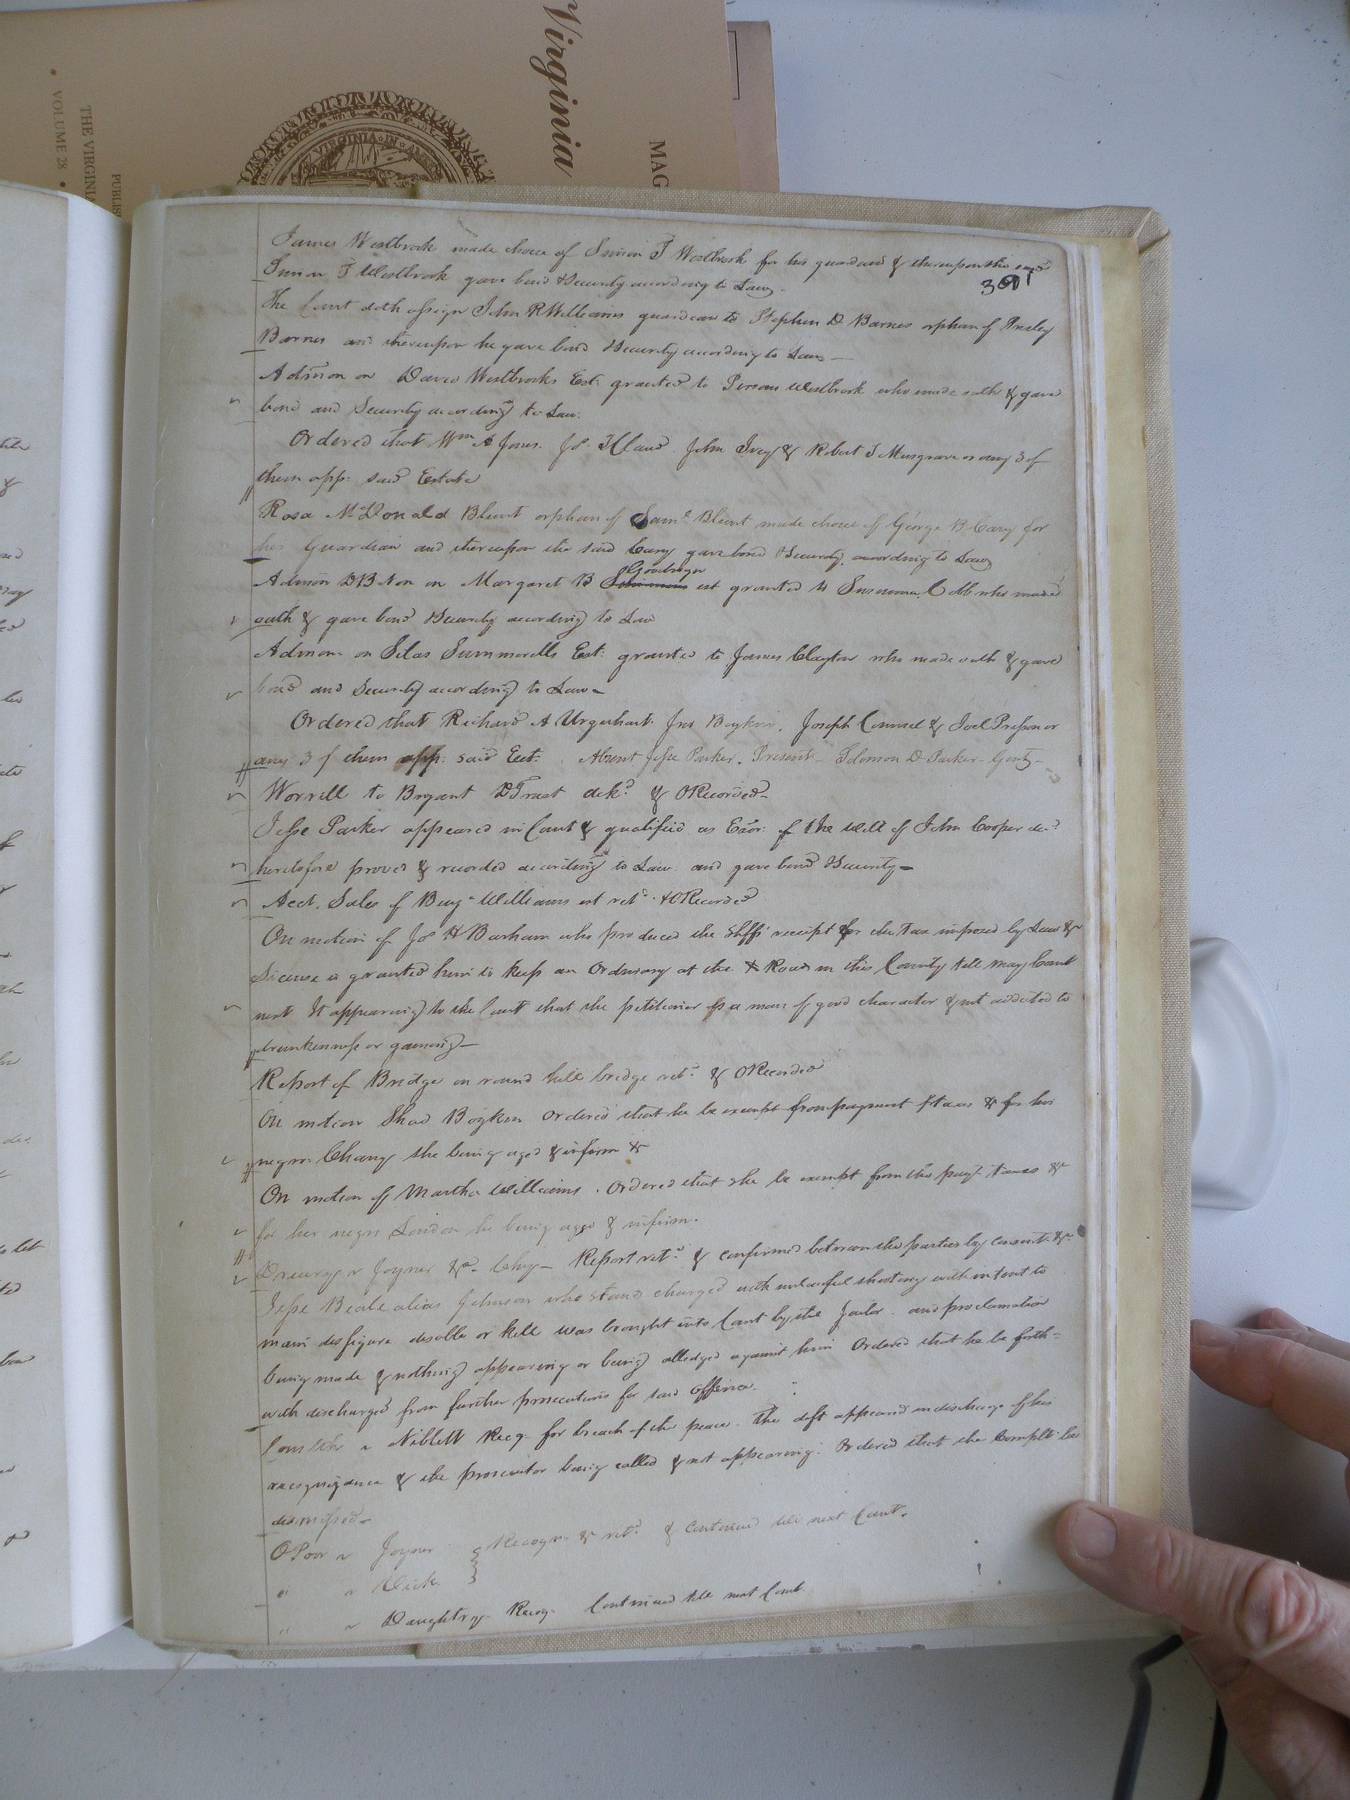 Virginia
MAG
VIRGINIA
THE VIRGINIA
VOLUME 28
PUBLIS
301
James Westbrook made choice of Simon T Westbrook for his guardian & thereupon the said
Simon T Westbrook gave bond & Security according to Law.
The Court doth assign John R Williams guardian to Stephen D Barnes orphan of Presley
Barnes and thereupon he gave bond & Security according to Law —
Admon on David Westbrooks Est. granted to Person Westbrook who made oath & gave
bond and Security according to Law.
Ordered that Wm A Jones. Jos. John Ivey & Robert T Musgrave or any 3 of
them app. said Estate
Rosa McDonald Blunt orphan of Saml. Blunt made choice of George B Cary for
her Guardian and thereupon the said Cary gave bond & Security according to Law
Goodwyn
Admon DB Non on Margaret B est granted to Susanna Cobb who made
oath & gave bond & Security according to Law
Admon on Silas Summerells Est. granted to James Clayton who made oath & gave
bond and Security according to Law —
Ordered that Richard A Urquhart. Jno Boykin, Joseph Councel & Joel Presson or
any 3 of them app. said Est. Absent Jesse Parker. Present — Solomon D Parker. Gent —
Worrill to Bryant D Trust ack.d & ORecorded —
Jesse Parker appeared in Court & qualified as Exor. of the will of John Cooper dec.d
heretofore proved & recorded according to Law and gave bond & Security —
Acct. Sales of Benj. Williams est ret.d & ORecorded
On motion of Jos H Barham who produced the Shffs receipt for the tax imposed by Law &
License is granted him to keep an Ordinary at the X Roads in this County till May Court
next It appearing to the Court that the petitioner is a man of good character & not addicted to
drunkenness or gaming —
Report of Bridge on round hill bridge ret.d & ORecorded
On motion Shad Boykin Ordered that he be exempt from payment of taxes & for his
negro Chany she being aged & infirm &
On motion of Martha Williams. Ordered that she be exempt from the payt. taxes &
for her negro London he being aged & infirm.
Drewry v Joyner &c. Chy — Report ret.d & confirmed between the parties by consent &c
Jesse Beale alias Johnson who stands charged with unlawful shooting with intent to
maim disfigure disable or kill was brought into Court by the Jailor. and proclamation
being made & nothing appearing or being alledged against him Ordered that he be forth=
with discharged from further prosecution for said offence.
v Niblett Recog. for breach of the peace. The deft appeared in discharge of his
recognizance & the prosecutor being called & not appearing. Ordered that the Complt. be
dismissed —
OPoor v Joyner } Recogn. & ret.d & Continued till next Court.
" v Dick }
" v Daughtry Recog. Continued till next Court